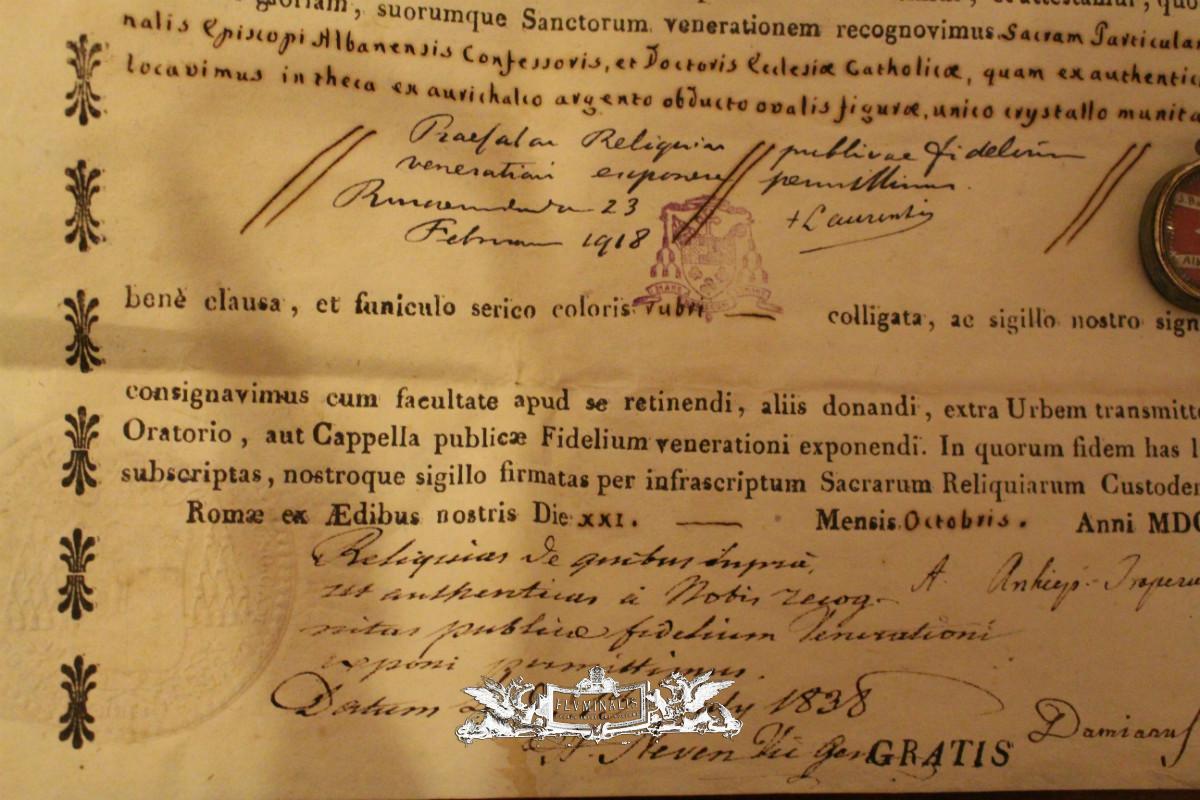 gloriam, suorumque Sanctorum venerationem recognovimus Sacram Particulam
nalis Episcopi Albanensis Confessoris, et Doctoris Ecclesiæ Catholicæ, quam ex authentici
locavimus in theca ex aurichalco argento obducto ovalis figuræ, unico crystallo munita
Praefatas Reliquias publicae fidelium
venerationi exponere permittimus.
23 + Laurentius
1918
benè clausa, et funiculo serico coloris rubri — colligata, ac sigillo nostro sign
consignavimus cum facultate apud se retinendi, aliis donandi, extra Urbem transmitte
Oratorio, aut Cappella publicæ Fidelium venerationi exponendi. In quorum fidem has l
subscriptas, nostroque sigillo firmatas per infrascriptum Sacrarum Reliquiarum Custodem
Romæ ex Ædibus nostris Die XXI. — Mensis Octobris. Anni MDC
Reliquias de quibus supra,
authenticas à Nobis recog-
nitas publicæ fidelium Venerationi
exponi permittimus.
Datum 1838
FLUMINALIS
Steven Vic Gen GRATIS
Damianus